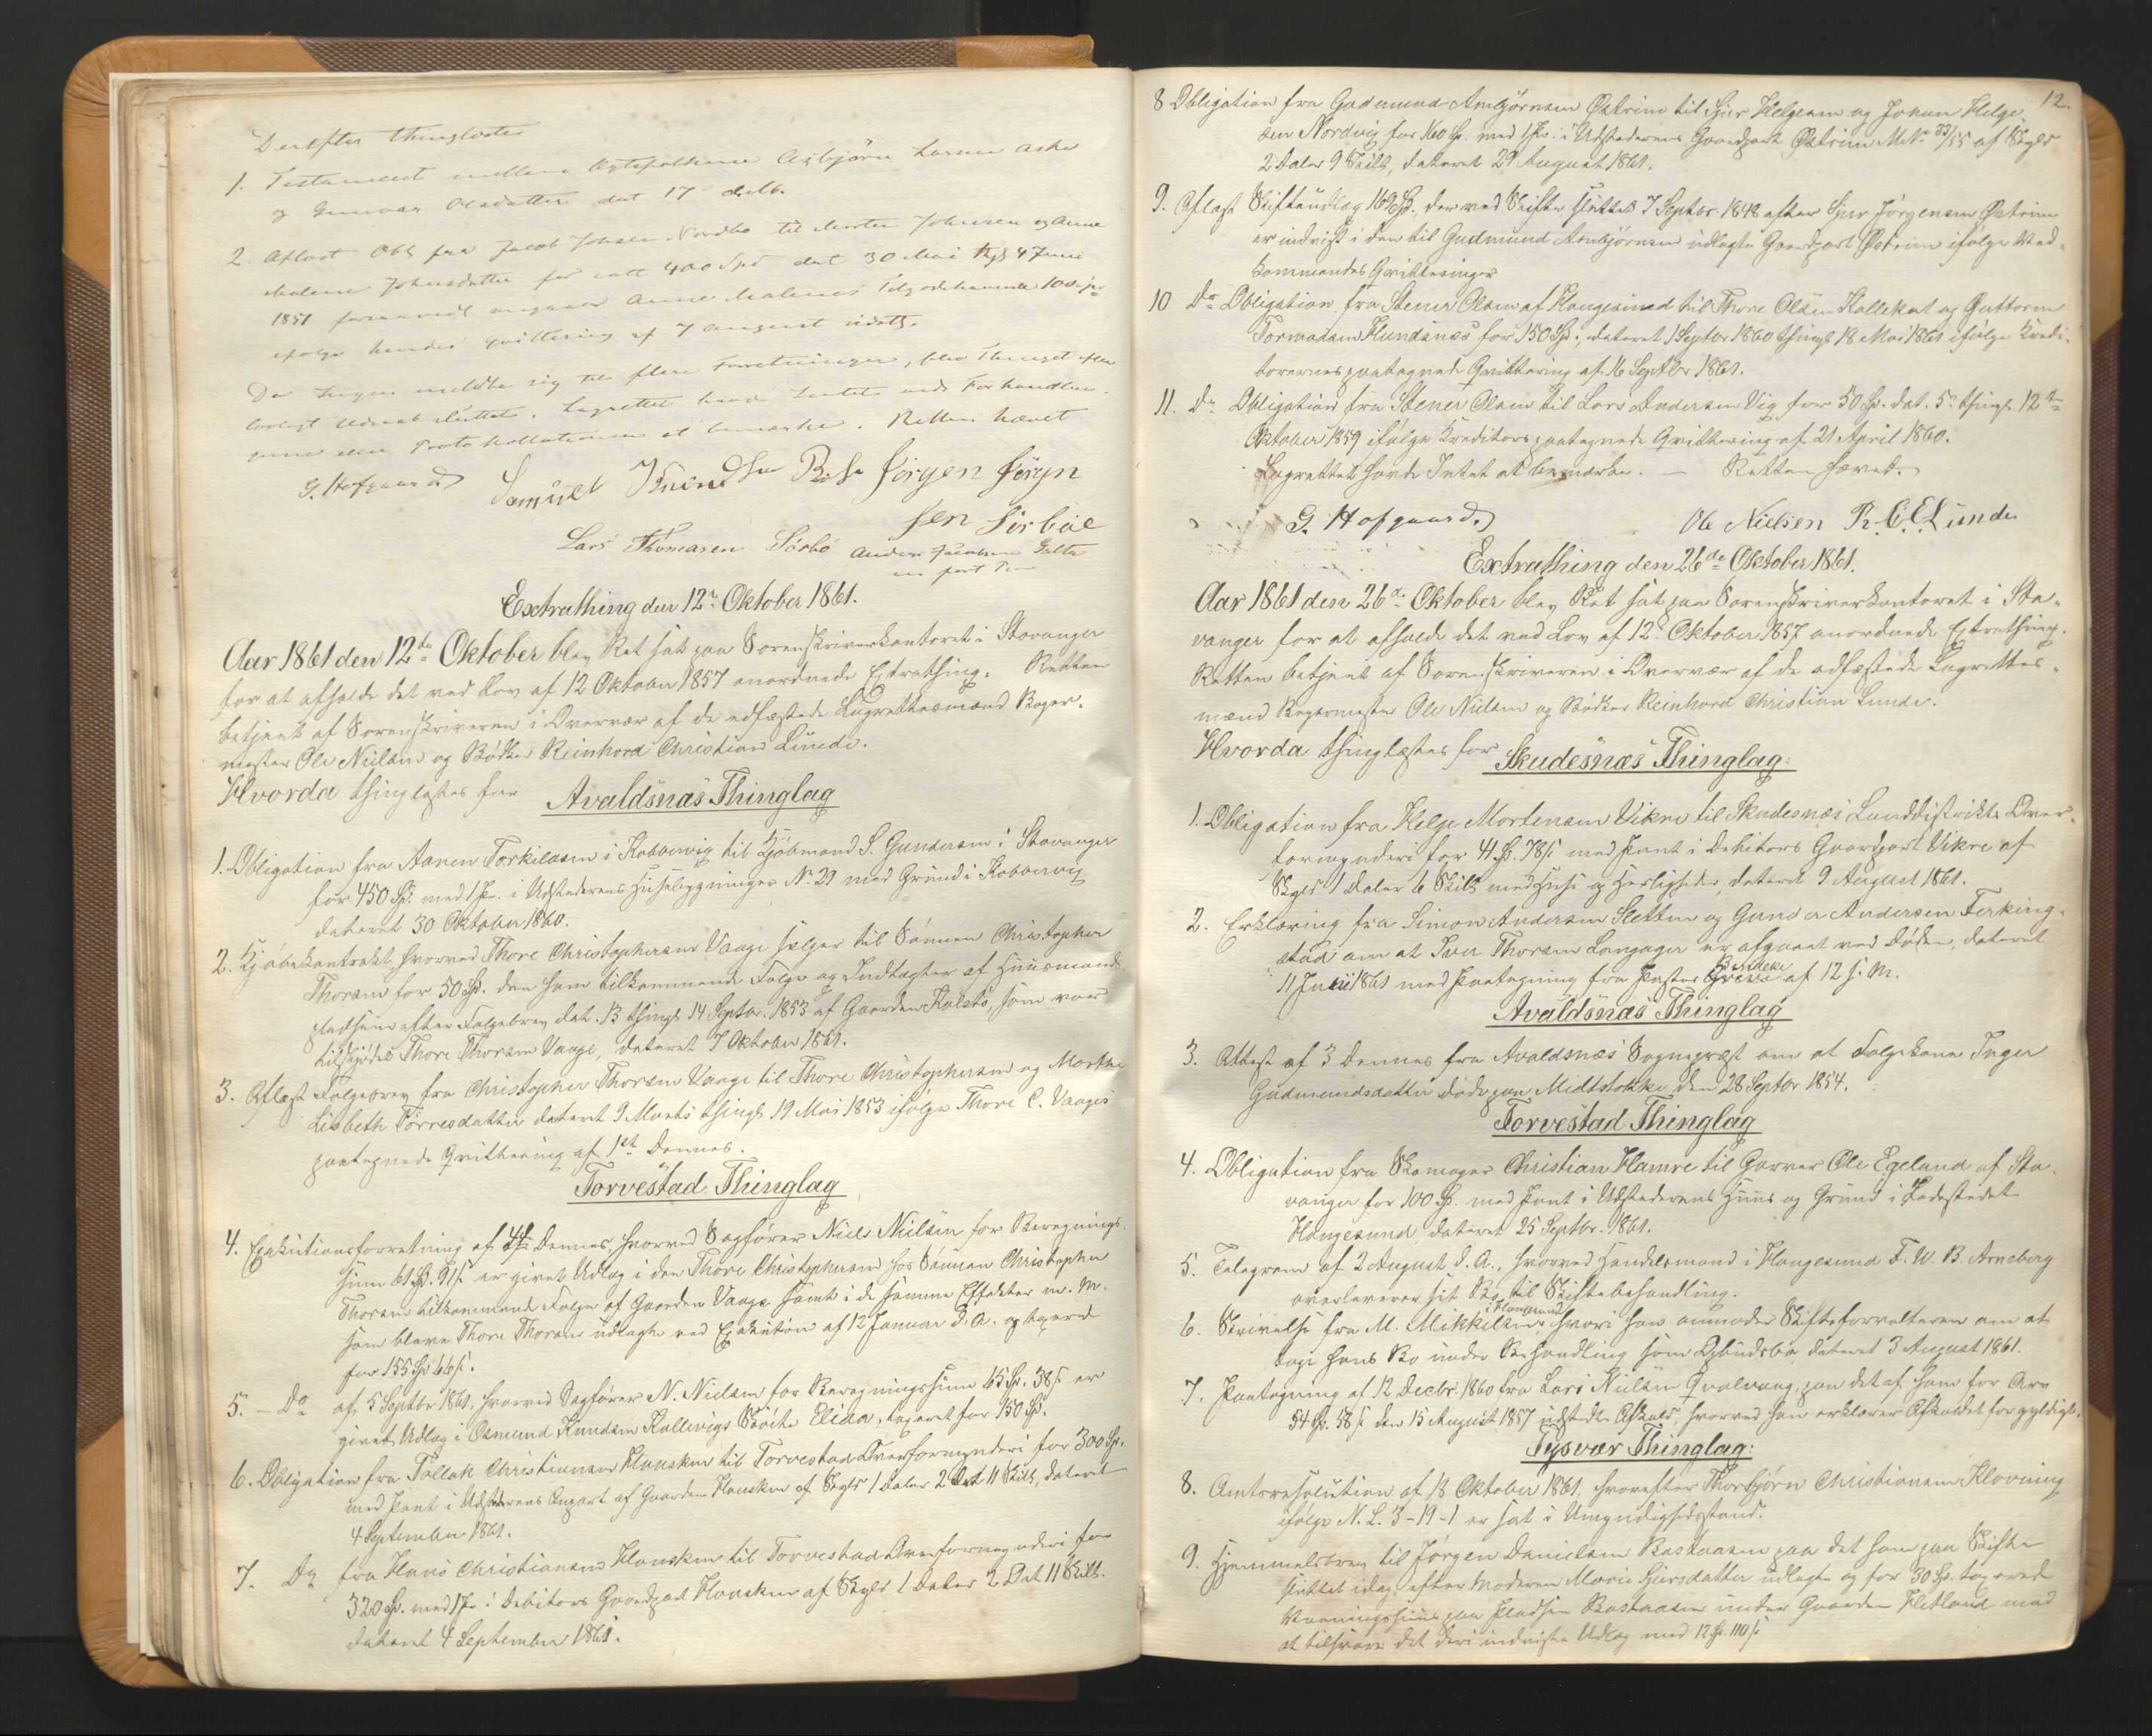 Derefter thinglæstes
1. Testament mellem Ægtefolkene Asbjörn Larsen Aske
og Gunvor Olsdatter dat 17 d.M.
2. Aflæst Obl fra Jacob Johnsen Nordbø til Morten Johnsen og Anne
Malene Johnsdatter for ialt 400 Spd dat 30 Mai thgl 4 Juni
1851 forsaavidt angaar Anne Malenes Tilgodehavende 100 Spd
ifølge hendes qvittering af 7 august sidstl.
Da Ingen meldte sig til flere Forretninger, blev Thinget efter
lovligt Udraab sluttet. Lagrettet havde Intet ved Forhandlin-
gerne eller Protokollationen at bemærke. Retten hævet
G. Hofgaard Samuel Knudsen Jörgen Jörgn
sen Sörböe
Lars Thomasen Sörbö Anders Jacobsen
Extrathing den 12te Oktober 1861.
Aar 1861 den 12te Oktober blev Ret sat paa Sorenskriverkontoret i Stavanger
for at afholde det ved Lov af 12 Oktober 1857 anordnede Extrathing. Retten
betjent af Sorenskriveren i Overvær af de edfæstede Lagrettesmænd Bager-
mester Ole Nielsen og Bödker Reinhard Christian Lunde.
Hvorda thinglæstes for Avaldsnæs Thinglag
1. Obligation fra Aanen Torkildsen i Kobbervig til Kjöbmand S. Gundersen i Stavanger
for 450 Sp. med 1 Pr. i Udstederens Huusebygninger No 29 med Grund i Kobbervig
dateret 30 Oktober 1860.
2. Kjöbekontrakt hvorved Thore Christophersen Vaage sælger til Sönnen Christopher
Thorsen for 50 Sp. den ham tilkommende Folge og Indtægter af Huusmands
pladsen efter Folgebrev dat. 13 thingl 14 Septbr. 1853 af Gaarden Kalstö, som var
tilskjödet Thore Thorsen Vaage, dateret 7 Oktober 1861.
3. Aflæst Folgebrev fra Christopher Thorsen Vaage til Thore Christophersen og Marthe
Lisbeth Törresdatter dateret 9 Marts thingl 19 Mai 1853 ifölge Thore C. Vaages
paategnede Qvittering af 1st Dennes.
Torvestad Thinglag
4. Exekutionsforretning af 4de Dennes, hvorved Sagförer Niels Nielsen for Beregnings-
sum 61 Sp. 91 s er givet Udlæg i den Thore Christophersen hos Sönnen Christopher
Thorsen tilkommende Folge af Gaarden Vaage samt i de samme Effekter m. M.
som bleve Thore Thorsen udlagte ved Exekution af 12 Januar d. A. og taxerede
for 155 Sp 66 s.
5. – Do af 5 Septbr 1861. hvorved Sagförer N. Nielsen for Beregningssum 65 Sp. 38 s er
givet Udlæg i Osmund Knudsen Kallevigs Sköite Elida, taxeret for 150 Sp.
6. Obligation fra Tollak Christiansen Hausken til Torvestad Overformynderi for 300 Sp.
med Pant i Udstederens Anpart af Gaarden Hausken af Skyld 1 Daler 2 Ort 11 Skill, dateret
4 September 1861.
7. Do fra Hans Christiansen Hausken til Torvestad Overformynderi for
320 Sp. med 1 Pr. i Debitors Gaardpart Hausken af Skyld 1 Daler 2 Ort 11 Skill.
dateret 4 September 1861.
12.
8 Obligation fra Gudmund Asbjörnsen Østrim til Sjur Helgesen og Johan Helge-
sen Nordvig for 160 Sp. med 1 Pr. i Udstederens Gaardpart Østrim M.No 33/55 af Skyld
2 Daler 9 Skill, dateret 29 August 1861.
9. Aflæst Skifteudlæg 169 Sp. der ved Skifte sluttet 7 Septbr. 1848 efter Sjur Jörgensen Østrim
er indvist i den til Gudmund Asbjörnsen udlagte Gaardpart Østrim ifölge Ved-
kommendes Qvitteringer
10 Do Obligation fra Stener Olsen af Haugesund til Thore Olsen Kallekat og Guttorm
Tormodsen Hundsnæs for 150 Sp. dateret 1 Septbr 1860 thingl 18 Mai 1861 ifölge Kredi-
torernes paategnede Qvittering af 16 Septbr 1861.
11. Do Obligation fra Stener Olsen til Lars Andersen Vig for 50 Sp. dat. 5te thingl 12te
Oktober 1859 ifölge Kreditors paategnede Qvittering af 21 April 1860.
Lagrettet havde Intet at bemærke. — Retten hævet.
G. Hofgaard. Ole Nielsen R. C. E Lunde
Extrathing den 26de Oktober 1861.
Aar 1861 den 26de Oktober blev Ret sat paa Sorenskriverkontoret i Sta-
vanger for at afholde det ved Lov af 12 Oktober 1857 anordnede Extrathing.
Retten betjent af Sorenskriveren i Overvær af de edfæstede Lagrettes-
mænd Bagermester Ole Nielsen og Bödker Reinhard Christian Lunde.
Hvorda thinglæstes for Skudesnæs Thinglag:
1. Obligation fra Helge Mortensen Vikre til Skudesnæs Landdistrikts Over-
formynderi for 41 Sp. 78 s med Pant i Debitors Gaardpart Vikre af
Skyld 1 Daler 6 Skill med Huse og Herligheder, dateret 9 August 1861.
2. Erklæring fra Simon Andersen Sletten og Gunder Andersen Ferking-
stad om at Iver Thorsen Langager er afgaaet ved Døden, dateret
11 Juni 1861 med Paategning fra Pastor Bindeke af 12 s. M.
Avaldsnæs Thinglag
3. Attest af 3 Dennes fra Avaldsnæs Sogneprest om at Folgekone Inger
Gudmundsdatter døde paa Midtstokke den 28 Septbr 1854.
Torvestad Thinglag
4. Obligation fra Skomager Christian Hamre til Garver Ole Egeland af Sta-
vanger for 100 Sp. med Pant i Udstederens Huus og Grund i Ladestedet
Haugesund, dateret 25 Septbr. 1861.
5. Telegram af 2 August d. A., hvorved Handelsmand i Haugesund F. W. B. Arneberg
overleverer sit Bo til Skiftebehandling.
6. Skrivelse fra M. Mikkelsen i Haugesund, hvori han anmoder Skifteforvalteren om at
tage hans Bo under Behandling som Opbudsbo dateret 3 August 1861.
7. Paategning af 12 Decbr. 1860 fra Lars Nielsen Qvalvaag, paa det af ham for Arv
54 Sp. 58 s den 15 August 1857 udstedte Afkald, hvorved han erklærer Afkaldet for gyldigt.
Tysvær Thinglag:
8. Amtsresolution af 18 Oktober 1861, hvorefter Thorbjörn Christiansen Klovning
ifölge N. L. 3-19-1 er sat i Umyndighedsstand.
9. Hjemmelsbrev til Jörgen Danielsen Bastaasen paa det ham paa Skifte
sluttet idag efter Moderen Marie Sjursdatter udlagte og for 30 Sp. taxerede
Vaaningshuus paa Pladsen Bastaasen under Gaarden Hetland med
at tilsvare det deri indviste Udlæg med 12 Sp. 110 s